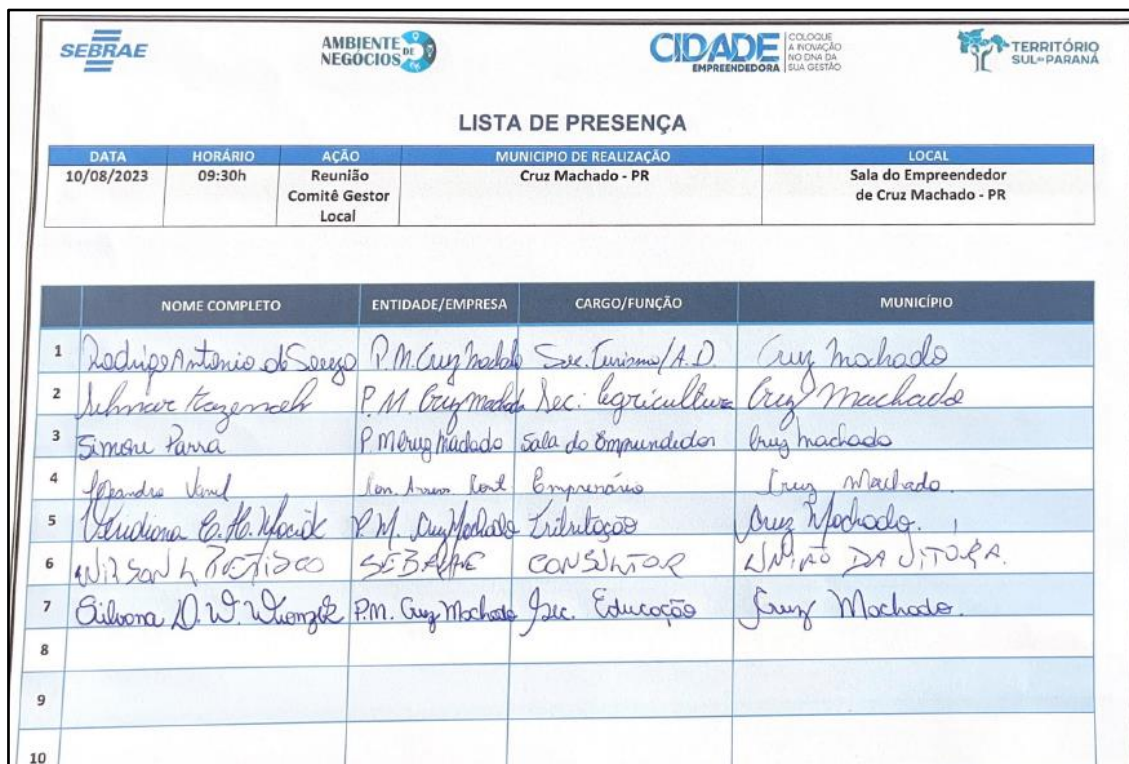 SEBRAE
AMBIENTE DE NEGÓCIOS
CIDADE EMPREENDEDORA
COLOQUE A INOVAÇÃO NO DNA DA SUA GESTÃO
TERRITÓRIO SUL DO PARANÁ
LISTA DE PRESENÇA
DATA HORÁRIO AÇÃO MUNICIPIO DE REALIZAÇÃO LOCAL
10/08/2023 09:30h Reunião Cruz Machado - PR Sala do Empreendedor
Comitê Gestor de Cruz Machado - PR
Local
NOME COMPLETO ENTIDADE/EMPRESA CARGO/FUNÇÃO MUNICÍPIO
1 Rodrigo Antonio de P.M. Cruz Machado Sec. Turismo/A.D. Cruz Machado
2 P.M. Cruz Machado Sec. Agricultura Cruz Machado
3 Simone Parra P M Cruz Machado Sala do Empreendedor Cruz Machado
4 Empresário Cruz Machado.
5 Viridiana P.M. Cruz Machado Tributação Cruz Machado.
6 WILSON L SEBRAE CONSULTOR UNIÃO DA VITÓRA.
7 Silvana D. W. P.M. Cruz Machado Sec. Educação Cruz Machado.
8
9
10